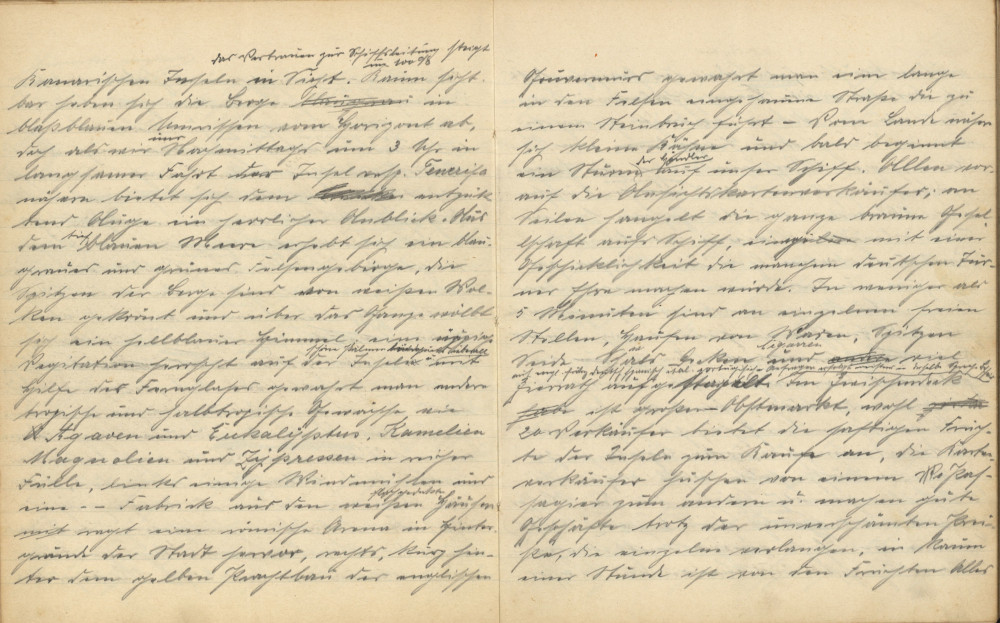 das Vertrauen zur Schiffsleitung steigt
um 100 %
Kanarischen Inseln in Sicht. Kaum sicht-
bar heben sich die Berge in
blaßblauen Umrissen vom Horizont ab,
doch als wir uns Nachmittags um 3 Uhr in
langsamer Fahrt der Insel resp. Teneriffa
nähern bietet sich dem entzück-
tem Auge ein herrlicher Anblick. Aus
dem blauen Meere erhebt sich ein blau-
graues und grünes Felsengebirge, die
Spitzen der Berge sind von weißen Wol-
ken gekrönt und über das Ganze wölbt
sich ein hellblauer Himmel, eine üppige
Vegitation herrscht auf der Insel und mit
Hilfe des Fernglases gewahrt man andere
tropische und halbtropische Gewächse, wie
Agaven und Eukalÿptus, Kamelien
Magnolien und Zÿpressen in reicher
Fülle, links einige Windmühlen und
eine -- Fabrick aus den weißen Häusern
mit ragt eine römische Arena im Hinter-
grunde der Stadt hervor, rechts, kurz hin-
ter dem gelben Prachtbau des englischen
Gouverneurs gewahrt man eine lange
in den Felsen eingehauene Straße die zu
einem Steinbruch führt – Vom Lande nähern
sich kleine Kähne und bald beginnt
ein Sturm der Händler auf unser Schiff. Allen vor-
auf die Ansichtskartenverkäufer; an
Seilen hangelt die ganze braune Gesel-
lschaft aufs Schiff, mit einer
Geschicklichkeit die manchem deutschen Tur-
ner Ehre machen würde. In weniger als
5 Menuten sind an einzelnen freien
Stellen, Haufen von Waren, Spitzen
Seide – Schals Decken und Cigarren viel
Zierrath aufgestapelt. Im Zwischendeck
ist großer Obstmarkt, wohl
20 Verkäufer bietet die saftigen Früch-
te der Inseln zum Kaufe an, die Karten-
verkäufer huschen von einem Pas-
sagier zum andern u. machen gute
Geschäfte trotz der unverschämten Prei-
se, die einzelne verlangen, in kaum
einer Stunde ist von den Früchten Alles